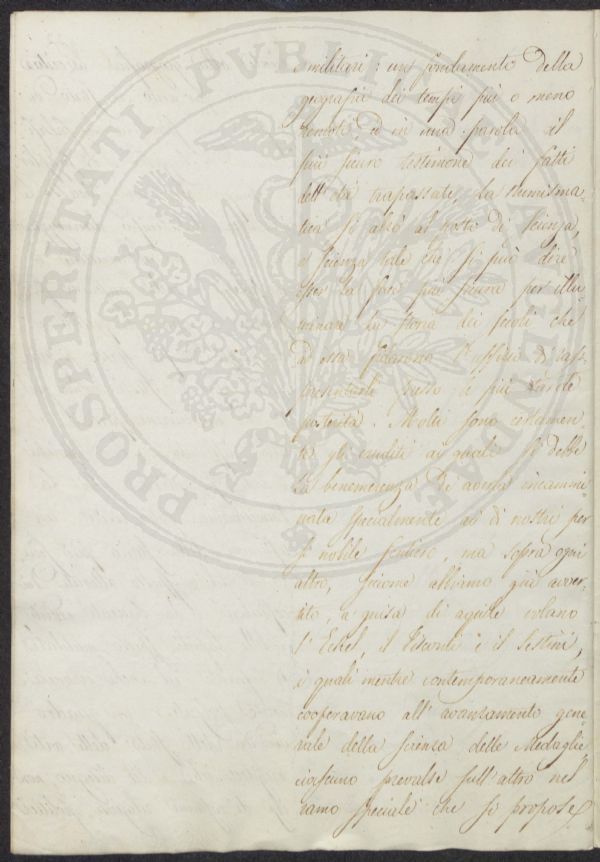 e militari: un fondamento della
geografia dei tempi più o meno
remoti, ed in una parola il
più sicuro testimone dei fatti
dell'età trapassate, la Numisma-
tica si alzò al posto di scienza,
e scienza tale che si può dire
esser la face più sicura per illu-
minare la storia dei secoli che
ad essa l'uffizio di rap-
presentarli presso le più tarde
posterità. Molti sono certamen-
te gli eruditi ai quali si debbe
la benemerenza di averla incammi-
nata specialmente ai dì nostri per
sì nobile sentiero, ma sopra ogni
altro, siccome abbiamo già avver-
tito, a guisa di aquile volano
l'Eckel, il Visconti e il Sestini,
i quali mentre contemporaneamente
cooperavano all'avanzamento gene-
rale della scienza delle Medaglie
ciascuno prevalse sull'altro nel
ramo speciale che si propose
PROSPERITATI PVBLICAE AVGENDAE